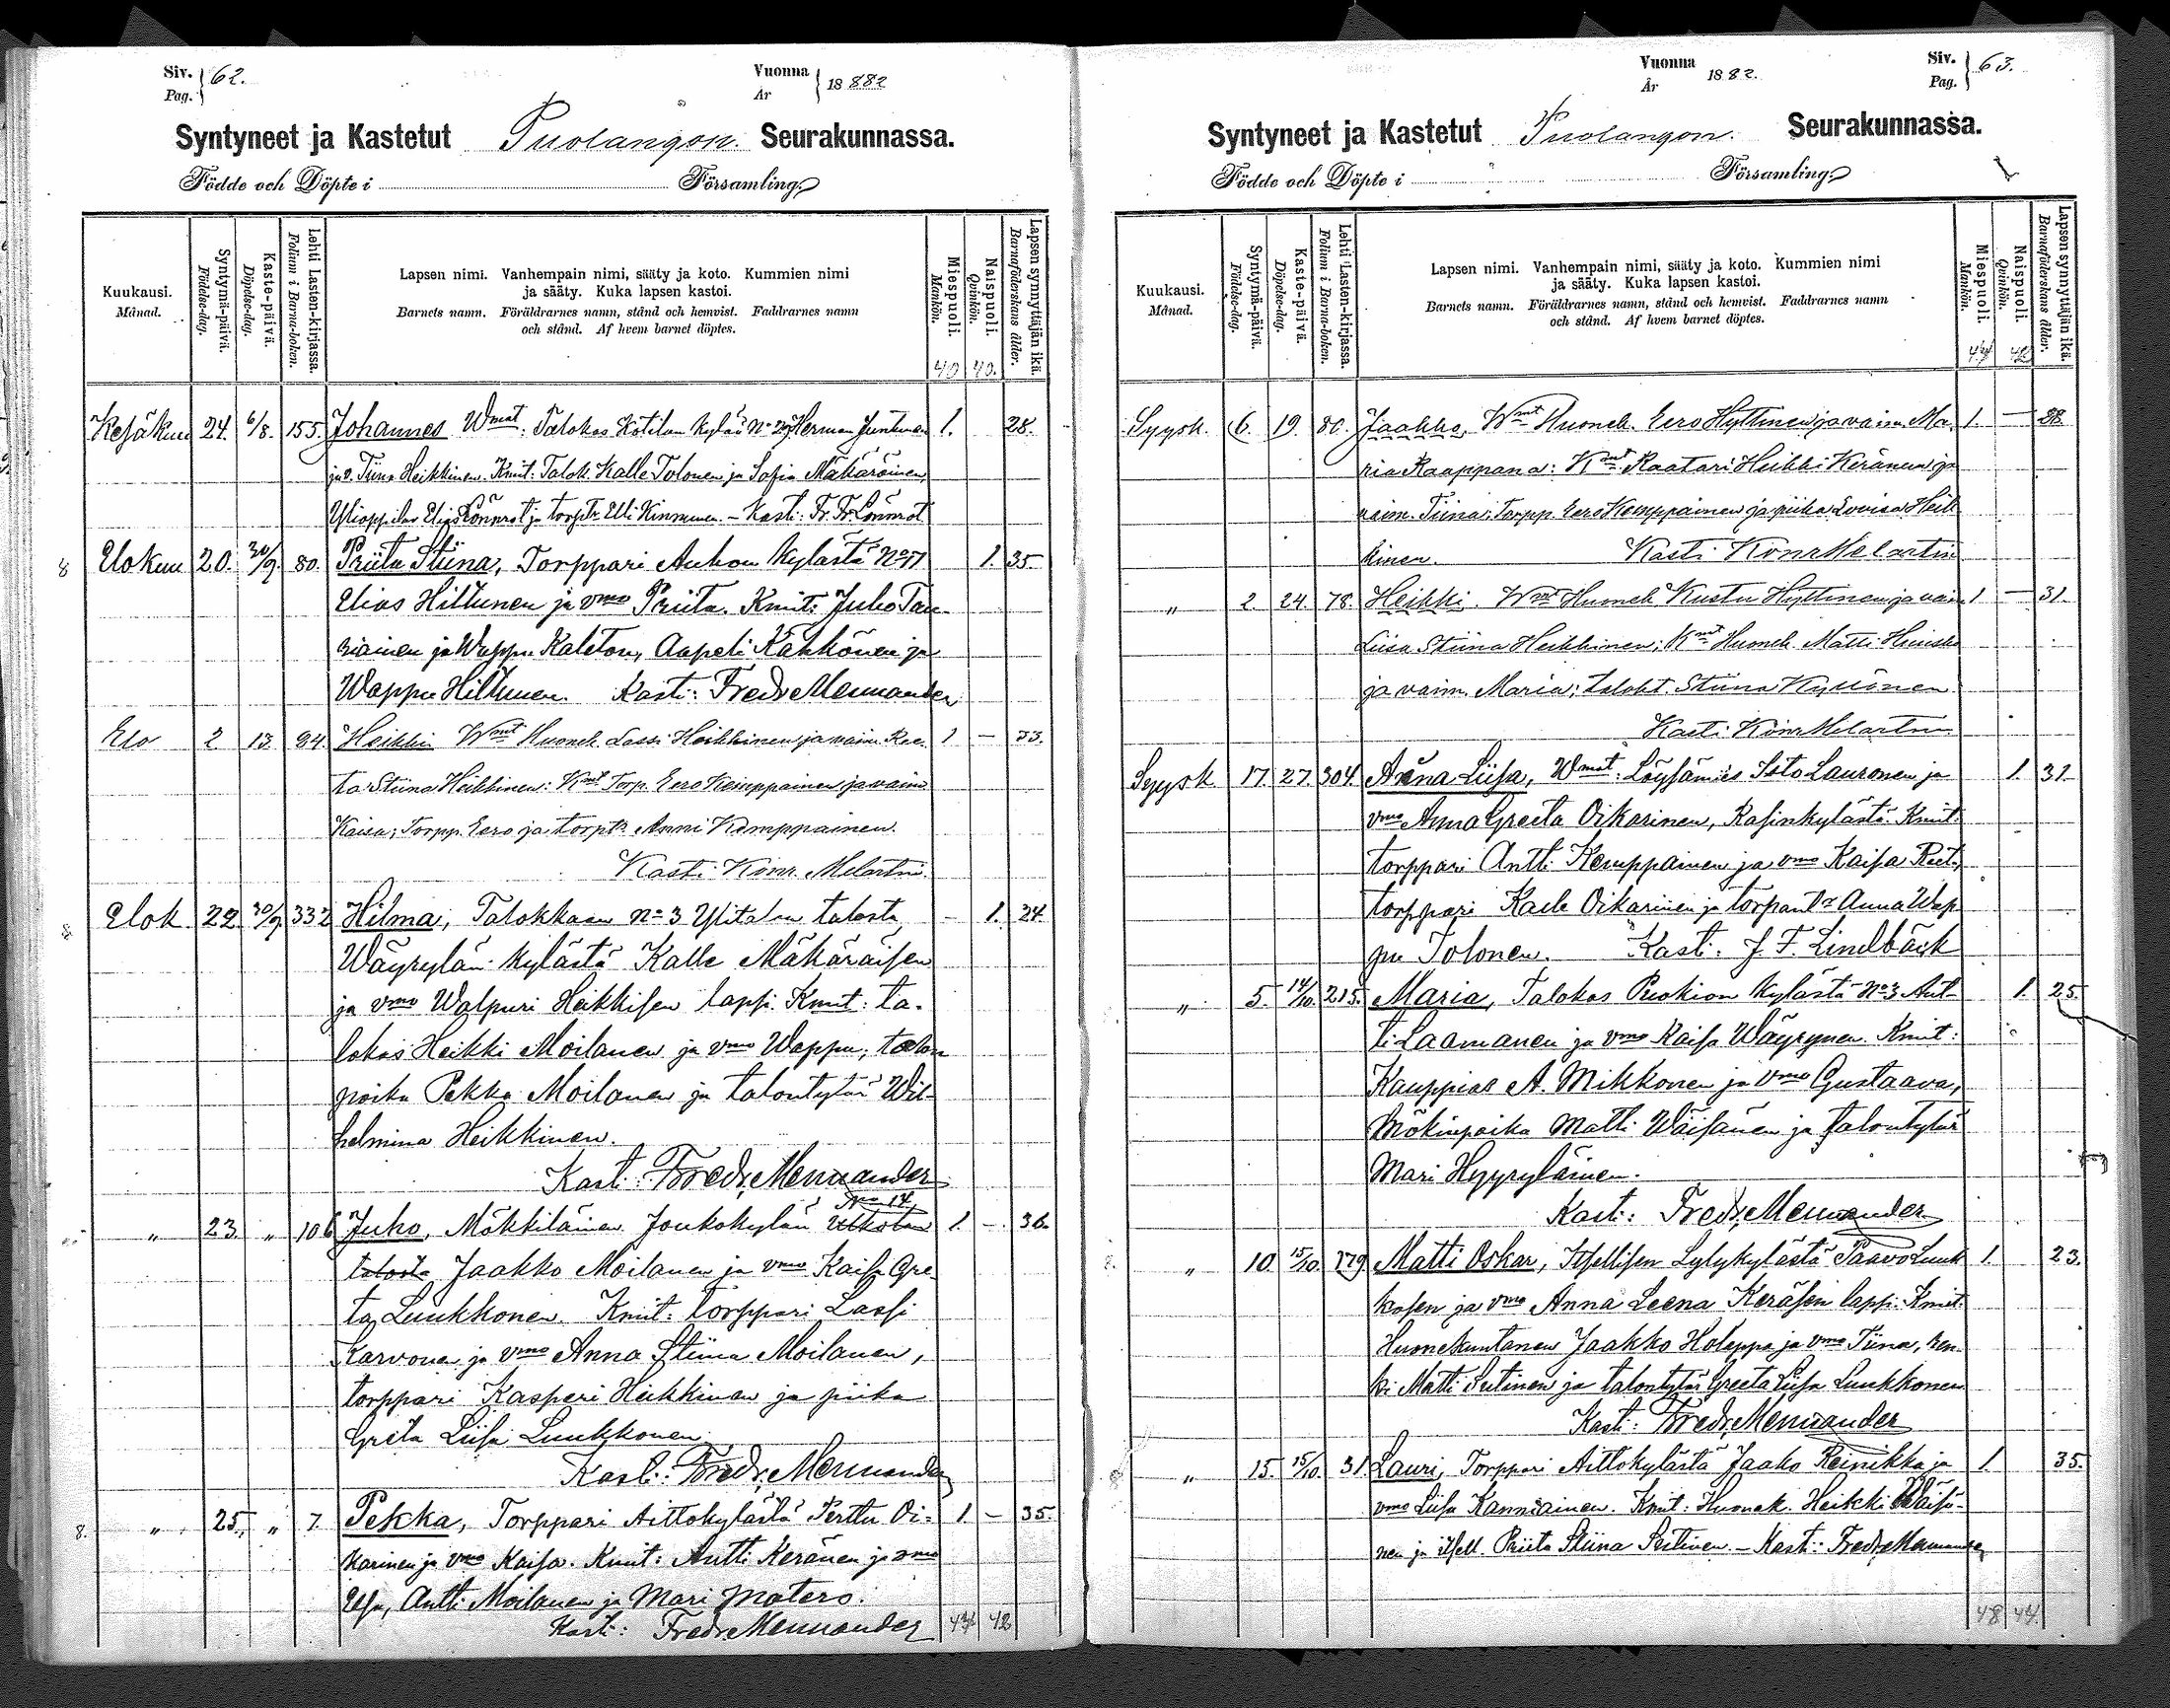 Siv. 62.
Pag.
Vuonna 18882
År
Syntyneet ja Kastetut Puolangon. Seurakunnassa.
Födde och Döpte i Församling
Kuukausi.
Månad.
Syntymä-päivä.
Födelse-dag.
Kaste-päivä.
Döpelse-dag.
Lehti Lasten-kirjassa.
Folium i Barna-boken.
Lapsen nimi. Vanhempain nimi, sääty ja koto. Kummien nimi
ja sääty. Kuka lapsen kastoi.
Barnets namn. Föräldrarnes namn, stånd och hemvist. Faddrarnes namn
och stånd. Af hvem barnet döptes.
Miespuoli.
Mankön.
Naispuoli.
Qvinkön.
Lapsen synnyttäjän ikä.
Barnaföderskans ålder.
40 40.
Kesäkuu 24. 6/8. 155. Johannes Wmat: Talokas Kotilan kylää No 29 Herman Juntunen 1. 28.
ja v. Tiina Heikkinen. Kmit: Talok. Kalle Tolonen ja Sofia Mäkäräinen,
Ylioppilas Elias Lönnrot ja torptr Elli Kinnunen. - Kasti: Fr. Fr. Lönnrot
8 Elokuu 20. 30/9 80. Priita Stiina, Torppari Auhon kylästä No 17 1. 35
Elias Hiltunen ja vmo Priita. Kmit: Juho Tau-
riainen ja Wappu Kaleton, Aapeli Kähkönen ja
Wappu Hiltunen. Kasti: Fredr. Mennander
Elo 2 13. 84. Heikki Wmt Huonek. Lassi Heikkinen ja vaim. Ree- 1 - 33.
ta Stiina Heikkinen: Kmt Torp. Eero Kemppainen ja vaim
Kaisa; Torpp. Eero ja torptr. Anni Kemppainen.
Kasti: Konr. Melartin.
8 Elok 22. 30/9 332 Hilma, Talokkaan No 3 Ylitalon talosta - 1. 24.
Wäyrylän kylästä Kalle Mäkäräisen
ja vmo Walpuri Heikkisen lapsi. Kmit: ta-
lokas Heikki Moilanen ja vmo Wappu; talon
poika Pekka Moilanen ja talontytär Wil-
helmina Heikkinen.
Kasti: Fredr. Mennander
No 14
" 23. " 106 Juho, Mökkiläinen Joukokylän Ulkolan 1. - 36.
talosta Jaakko Moilanen ja vmo Kaisa Gre-
ta Luukkonen. Kmit: torppari Lassi
Karvonen ja vmo Anna Stiina Moilanen,
torppari Kasperi Heikkinen ja piika
Greta Liisa Luukkonen.
Kasti: Fredr. Mennander
8. " 25. " 7. Pekka, Torppari Aittokylästä Perttu Oi- 1. - 35.
karinen ja vmo Kaisa. Kmit: Antti Keränen ja vmo
Elsa, Antti Moilanen ja Mari Matero.
Kasti: Fredr. Mennander 44 42
Vuonna 1882.
År
Siv. 63.
Pag.
Syntyneet ja Kastetut Puolangon. Seurakunnassa.
Födde och Döpte i Församling
Kuukausi.
Månad.
Syntymä-päivä.
Födelse-dag.
Kaste-päivä.
Döpelse-dag.
Lehti Lasten-kirjassa.
Folium i Barna-boken.
Lapsen nimi. Vanhempain nimi, sääty ja koto. Kummien nimi
ja sääty. Kuka lapsen kastoi.
Barnets namn. Föräldrarnes namn, stånd och hemvist. Faddrarnes namn
och stånd. Af hvem barnet döptes.
Miespuoli.
Mankön.
Naispuoli.
Qvinkön.
Lapsen synnyttäjän ikä.
Barnaföderskans ålder.
44 42
Syysk. 6. 19. 80. Jaakko. Wmt Huonek. Eero Hyttinen ja vaim. Ma- 1. - 28.
ria Raappana: Kmt Raatari Heikki Keränen ja
vaim. Tiina; Torpp. Eero Kemppainen ja piika Lovisa Heik
kinen. Kasti Konr Melartin
" 2. 24. 78. Heikki. Wmt Huonek Kustu Hyttinen ja vaim 1 - 31.
Liisa Stiina Heikkinen; Kmt Huonek. Matti
ja vaim. Maria; talokt. Stiina Kyllönen.
Kasti: Konr Melartin
Syysk. 17. 27. 304. Anna Liisa, Wmat: Löysämies Isto Lauronen ja 1. 31.
vmo Anna Greeta Oikarinen, Rasinkylästä. Kmit:
torppari Antti Kemppainen ja vmo Kaisa
torppari Kalle Oikarinen ja torpantr Anna Wap
pu Tolonen. Kasti: J. F. Lindbäck
" 5. 14/10. 215. Maria, Talokas Puokion kylästä No 3 Ant- 1. 25.
ti Laamanen ja vmo Kaisa Wäyrynen. Kmit:
Kauppias A. Mikkonen ja vmo Gustaava,
Mökinpoika Matti Wäisänen ja talontytär
Mari Hyyryläinen.
Kasti: Fredr. Mennander
" 10. 15/10. 179 Matti Oskar, Itsellisen Lylykylästä Paavo Luuk 1. 23.
kosen ja vmo Anna Leena Keräsen lapsi. Kmit:
Huonekuntanen Jaakko Holappa ja vmo Tiina, ren-
ki Matti Seitinen ja talontytär Greeta Liisa Luukkonen
Kasti: Fredr. Mennander
" 15. 15/10. 31 Lauri, Torppari Aittokylästä Jaako Reinikka ja 1. 35.
vmo Liisa Kanniainen. Kmit: Huonek. Heikki Wäisä-
nen ja itsell. Priita Stiina Seitinen. - Kasti: Fredr. Mennander
48 44.